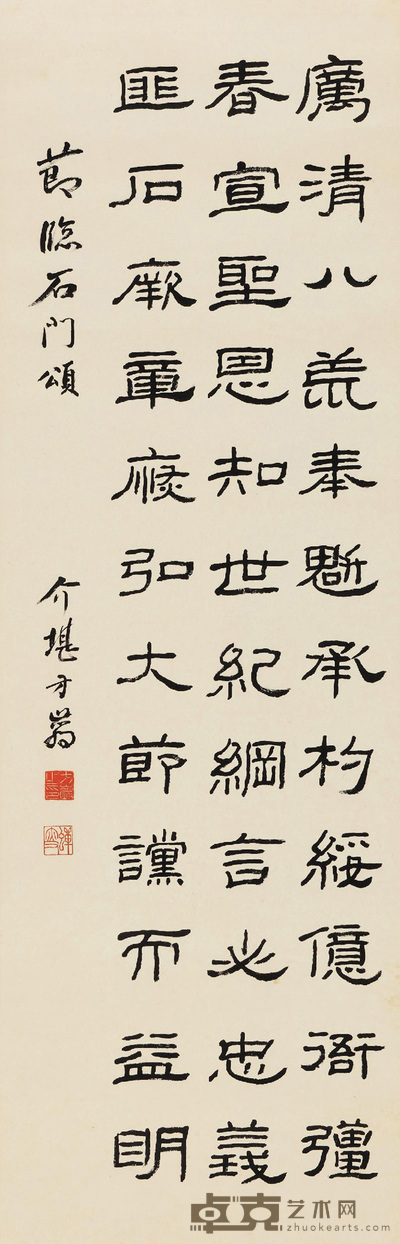 厲清八荒奉魁承杓綏億衙彊
春宣聖恩知世紀綱言必忠義
匪石厥章恢弘大節讜而益明
節臨石門頌
介堪方巖
卓克艺术网
zhuokearts.com